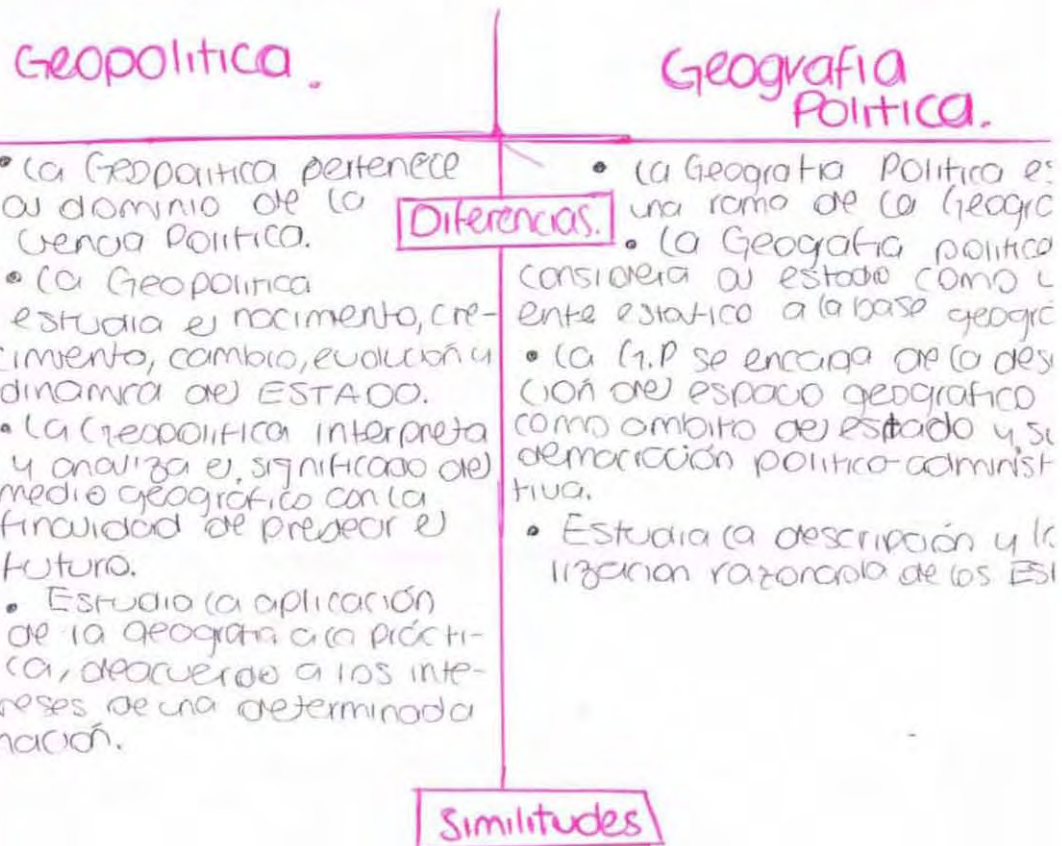 Geopolitica.
Diferencias.
• La Geopolitica pertenece
al dominio de la
Ciencia Politica.
• La Geopolitica
estudia el nacimento, cre-
cimiento, cambio, evolución y
dinamica del ESTADO.
• La Geopolitica interpreta
y analiza el significado del
medio geográfico con la
finalidad de predecir el
futuro.
• Estudia la aplicación
de la geografia a la prácti-
ca, deacuerdo a los inte-
reses de una determinada
nación.
Geografia
Politica.
• La Geografia Politica es
una rama de la Geogra
• La Geografia politica
considera al estado como u
ente estatico a la base geogra
• La G.P se encarga de la des
ción del espacio geografico
como ambito del estado y su
demarcación politico-administ
tiva.
• Estudia la descripción y
lización razonada de los Est
Similitudes